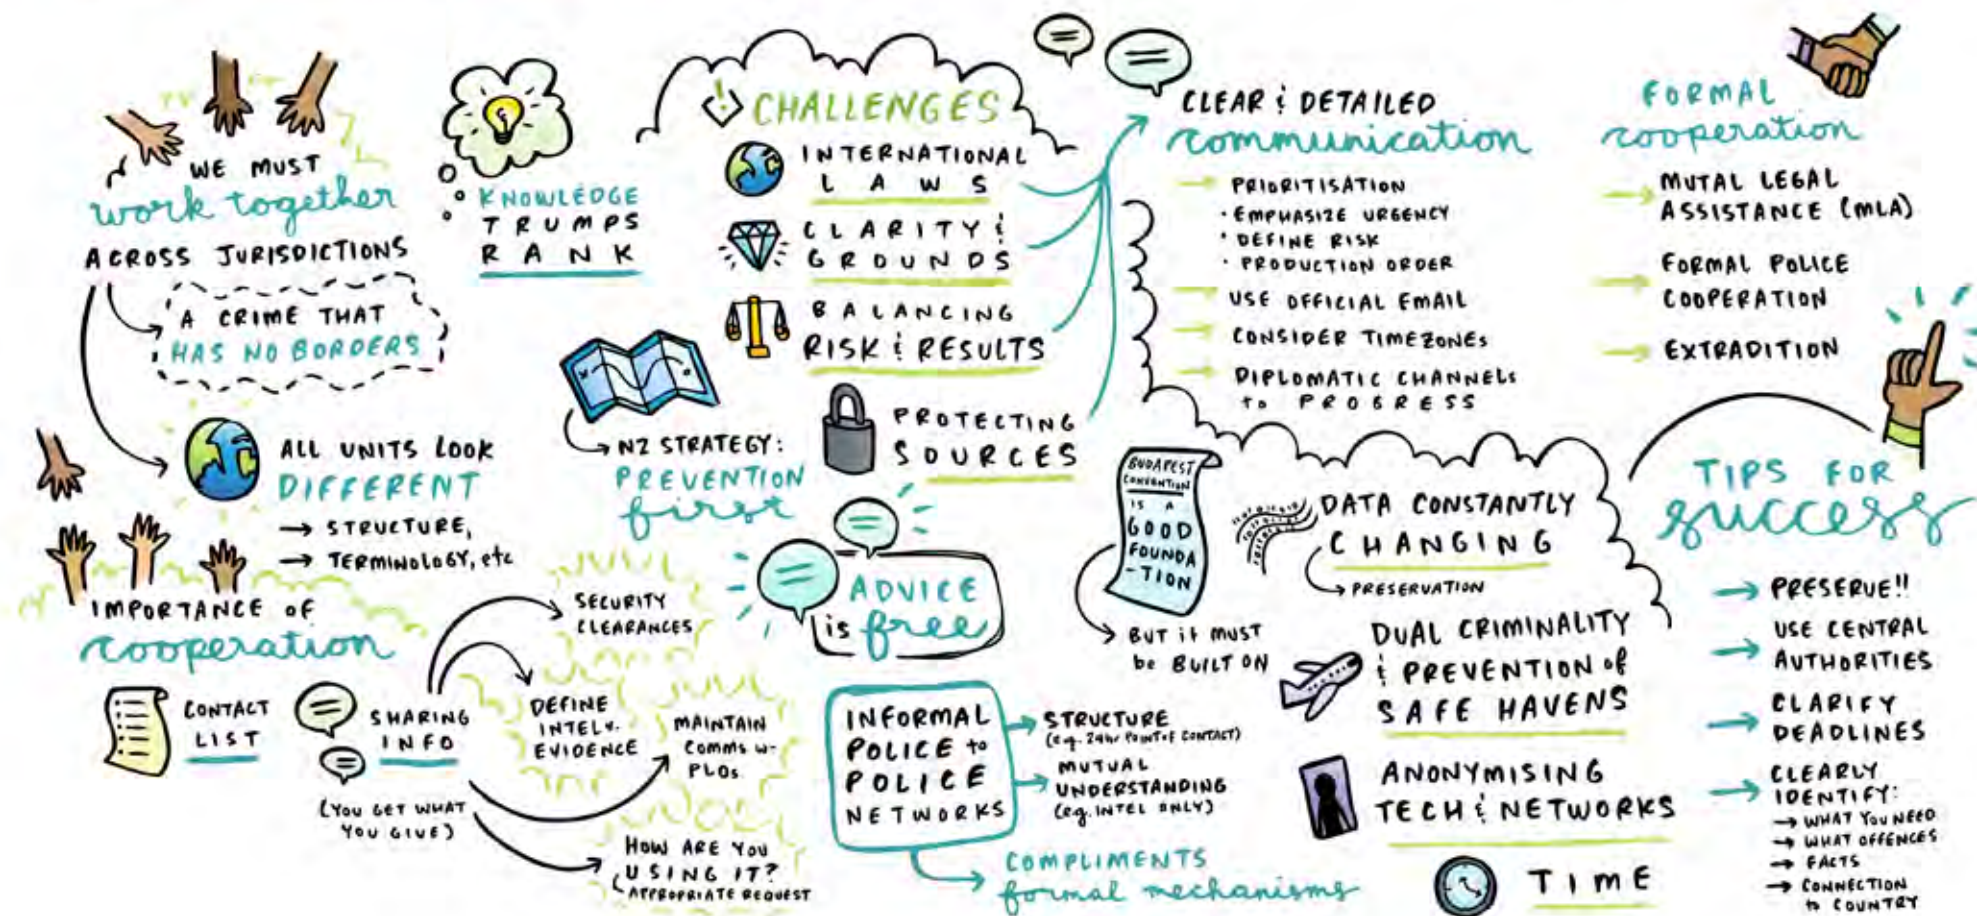 WE MUST
work together
ACROSS JURISDICTIONS
A CRIME THAT
HAS NO BORDERS
ALL UNITS LOOK
DIFFERENT
→ STRUCTURE,
→ TERMINOLOGY, etc
IMPORTANCE OF
cooperation
CONTACT
LIST
SHARING
INFO
(YOU GET WHAT
YOU GIVE)
SECURITY
CLEARANCES
DEFINE
INTEL v.
EVIDENCE
MAINTAIN
COMMS w-
PLOs
HOW ARE YOU
USING IT?
APPROPRIATE REQUEST
KNOWLEDGE
TRUMPS
RANK
NZ STRATEGY:
PREVENTION
first
CHALLENGES
INTERNATIONAL
LAWS
CLARITY &
GROUNDS
BALANCING
RISK & RESULTS
PROTECTING
SOURCES
ADVICE
is free
INFORMAL
POLICE to
POLICE
NETWORKS
STRUCTURE
(e.g. 24hr POINT OF CONTACT)
MUTUAL
UNDERSTANDING
(e.g. INTEL ONLY)
COMPLIMENTS
formal mechanisms
CLEAR & DETAILED
communication
→ PRIORITISATION
· EMPHASIZE URGENCY
· DEFINE RISK
· PRODUCTION ORDER
→ USE OFFICIAL EMAIL
→ CONSIDER TIMEZONES
→ DIPLOMATIC CHANNELS
to PROGRESS
BUDAPEST
CONVENTION
IS A
GOOD
FOUNDA
-TION
BUT it MUST
be BUILT ON
DATA CONSTANTLY
CHANGING
PRESERVATION
DUAL CRIMINALITY
& PREVENTION of
SAFE HAVENS
ANONYMISING
TECH & NETWORKS
TIME
FORMAL
cooperation
→ MUTAL LEGAL
ASSISTANCE (MLA)
→ FORMAL POLICE
COOPERATION
→ EXTRADITION
TIPS FOR
success
→ PRESERVE!!
→ USE CENTRAL
AUTHORITIES
→ CLARIFY
DEADLINES
→ CLEARLY
IDENTIFY:
→ WHAT YOU NEED
→ WHAT OFFENCES
→ FACTS
→ CONNECTION
to COUNTRY